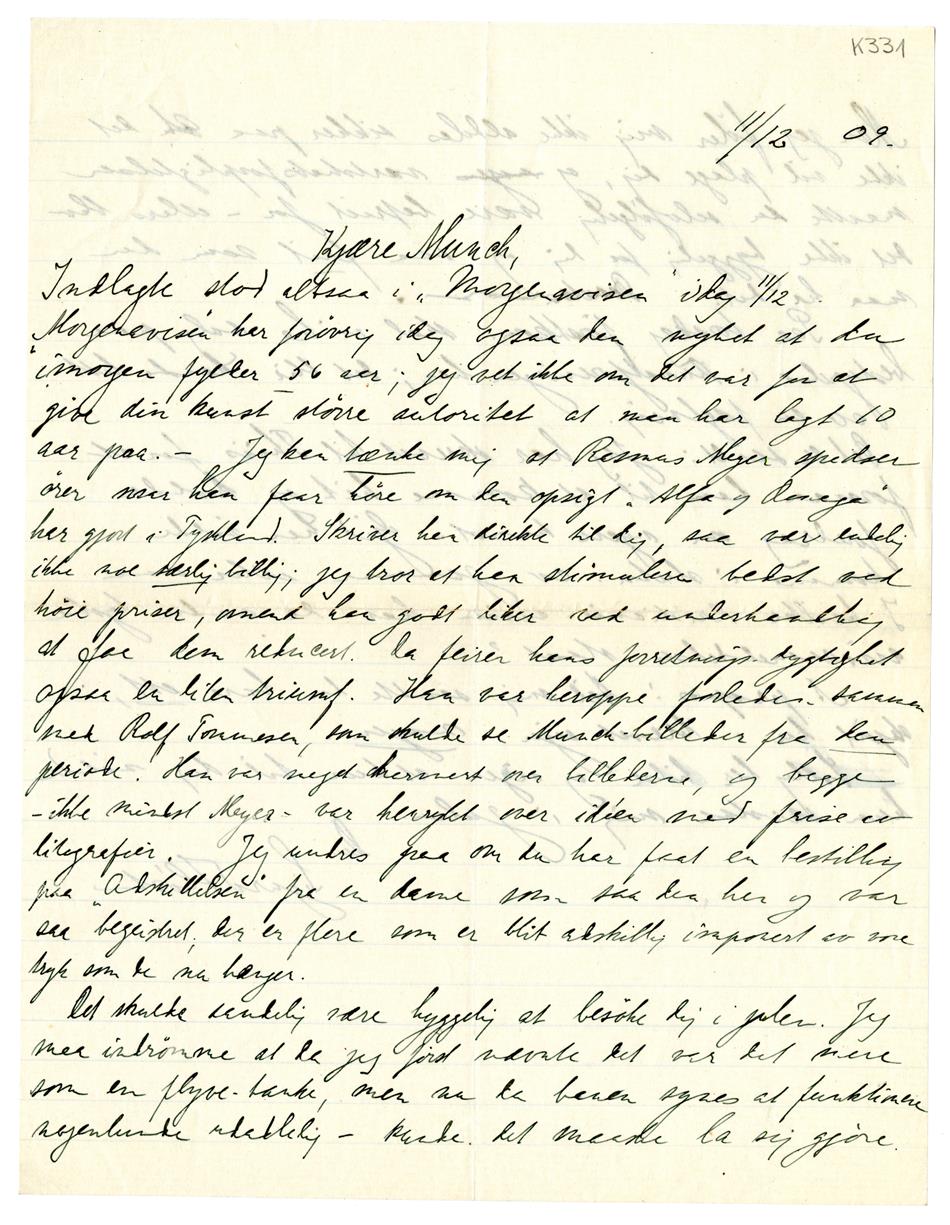 K331
11/12 09.
Kjære Munch,
Indlagte stod altsaa i „Morgenavisen" idag 11/12.
„Morgenavisen" har forövrig idag ogsaa den nyhet at du
imorgen fyller 56 aar; jeg vet ikke om det var for at
give din kunst större autoritet at man har lagt 10
aar paa. – Jeg kan tænke mig at Rasmus Meyer spidser
örer naar han faar höre om den opsigt „Alfa og Omega"
har gjort i Tyskland. Skriver han direkte til dig, saa vær endelig
ikke noe særlig billig; jeg tror at han stimuleres bedst ved
höie priser, omend han godt liker ved underhandling
at faa dem reducert. Da feirer hans forretnings dygtighet
ogsaa en liten triumf. Han var heroppe forleden sammen
med Rolf Tommesen, som skulde se Munch-billeder fra den
periode. Han var meget over billederne, og begge
– ikke mindst Meyer – var henrykt over idéen med frise av
litografier. Jeg undres paa om du har faat en bestilling
paa „Adskillelsen" fra en dame som saa den her og var
saa begeistret; der er flere som er blit adskillig imponert av vore
tryk som de nu hænger.
Det skulde sandelig være hyggelig at besöke dig i julen. Jeg
maa indrömme at da jeg först nævnte det var det mere
som en flyve-tanke, men nu da banen synes at funktionere
nogenlunde udadlelig – kunde det maaske la sig gjöre.